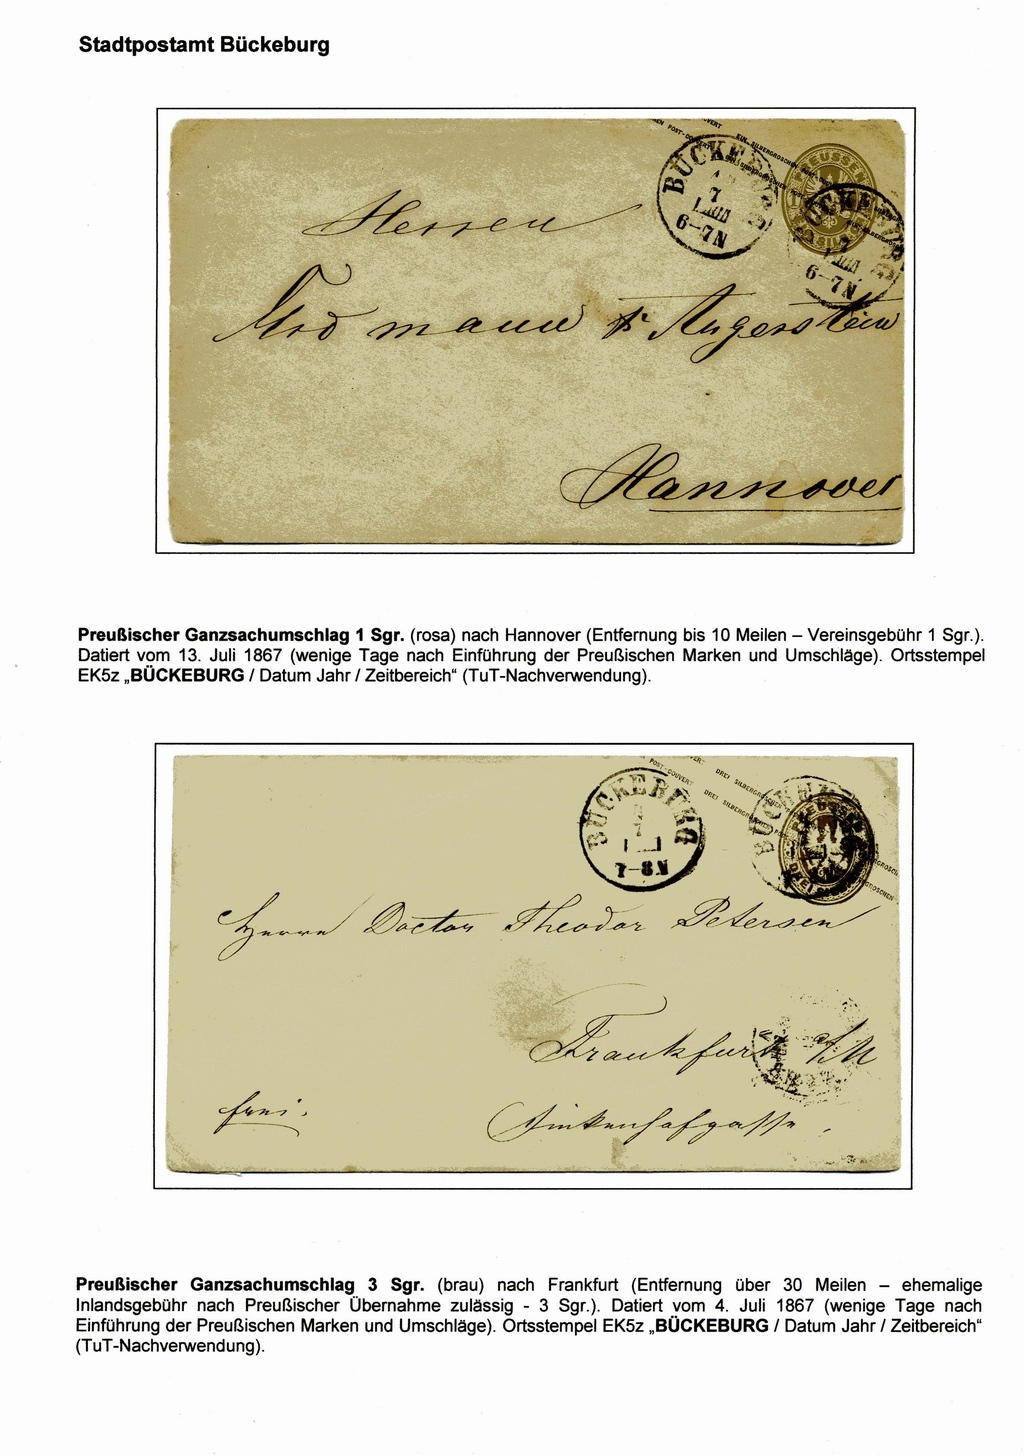 Stadtpostamt Bückeburg
POST-COUVERT EIN SILBERGROSCHEN
BÜCKEBURG
7
6-7N
PREUSSEN
6-7N
Herren
Erdmann & Angerstein
Hannover
Preußischer Ganzsachumschlag 1 Sgr. (rosa) nach Hannover (Entfernung bis 10 Meilen – Vereinsgebühr 1 Sgr.).
Datiert vom 13. Juli 1867 (wenige Tage nach Einführung der Preußischen Marken und Umschläge). Ortsstempel
EK5z „BÜCKEBURG / Datum Jahr / Zeitbereich“ (TuT-Nachverwendung).
POST-COUVERT DREI SILBERGROSCHEN
BÜCKEBURG
7
7-8N
PREUSSEN
Herrn Doctor Theodor Petersen
Frankfurt a/M
frei.
Finkenhofgasse.
Preußischer Ganzsachumschlag 3 Sgr. (brau) nach Frankfurt (Entfernung über 30 Meilen – ehemalige
Inlandsgebühr nach Preußischer Übernahme zulässig - 3 Sgr.). Datiert vom 4. Juli 1867 (wenige Tage nach
Einführung der Preußischen Marken und Umschläge). Ortsstempel EK5z „BÜCKEBURG / Datum Jahr / Zeitbereich“
(TuT-Nachverwendung).